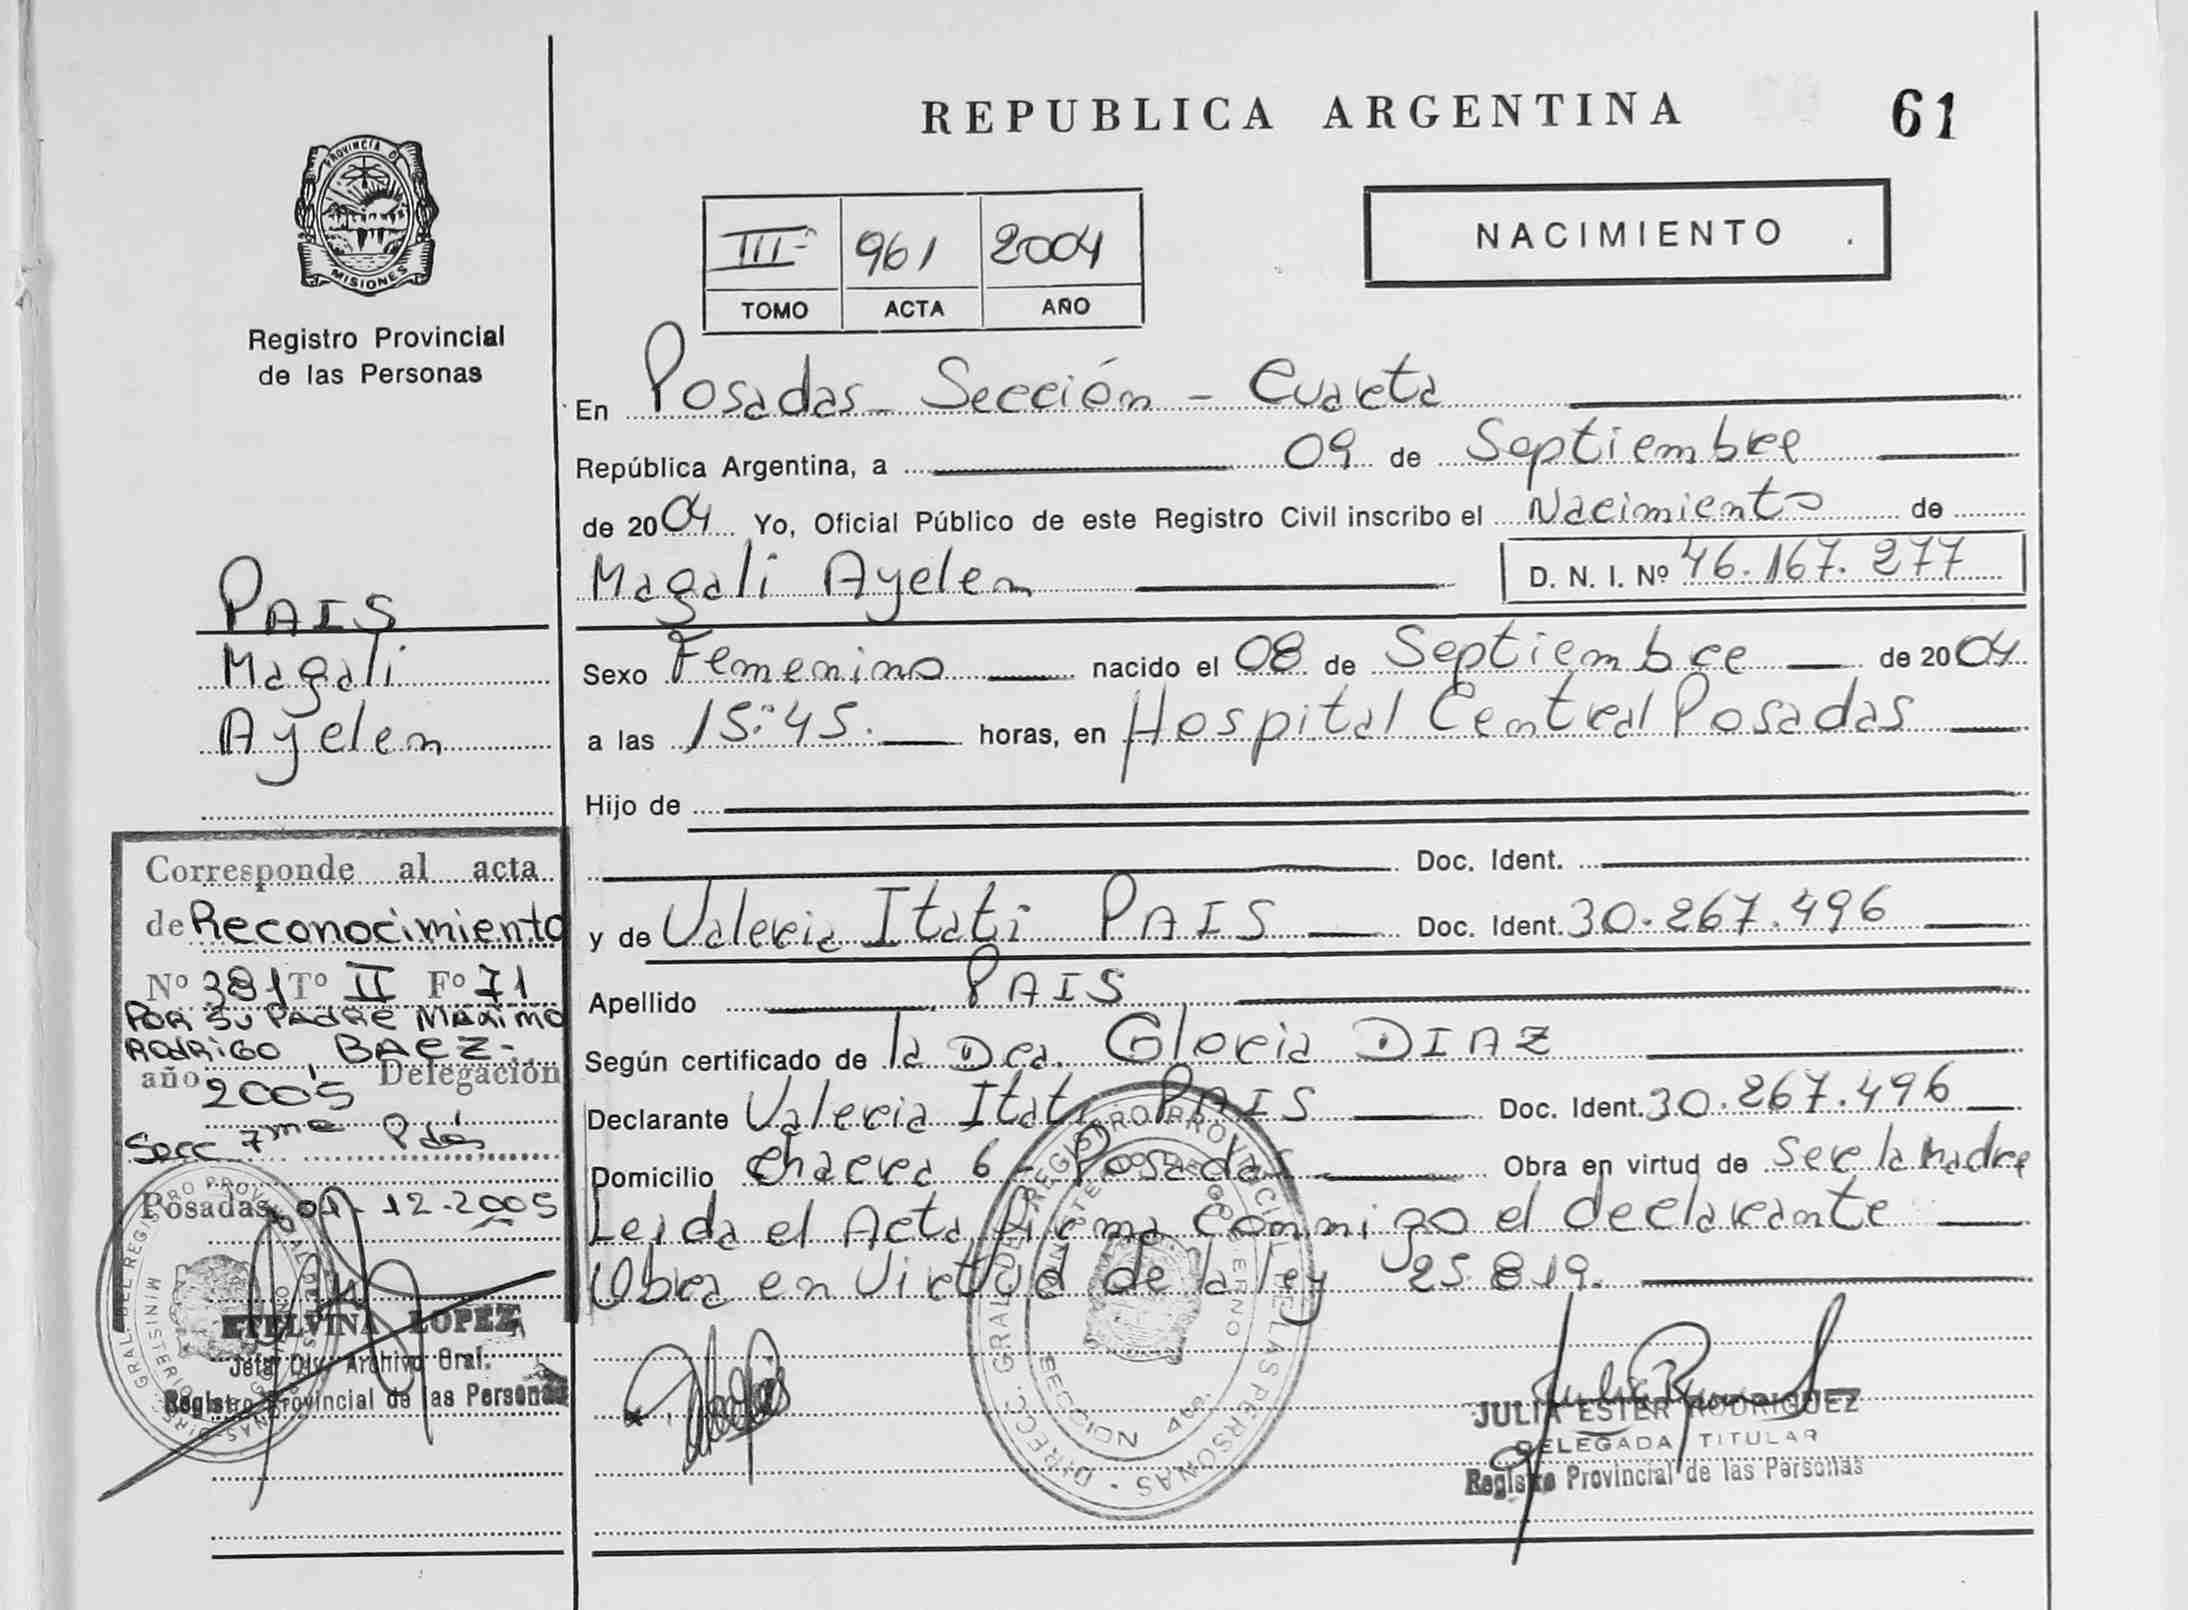 REPUBLICA ARGENTINA
61
PROVINCIA DE
MISIONES
Registro Provincial
de las Personas
III 961 2004
TOMO ACTA AÑO
NACIMIENTO
En Posadas - Sección - Cuarta
República Argentina, a 09 de Septiembre
de 2004 Yo, Oficial Público de este Registro Civil inscribo el Nacimiento de
Magali Ayelen D. N. I. Nº 46.167.277
Sexo Femenino nacido el 08 de Septiembre de 2004
a las 15:45. horas, en Hospital Central Posadas
Hijo de
Doc. Ident.
y de Valeria Itati PAIS Doc. Ident. 30.267.496
Apellido PAIS
Según certificado de la Dra. Gloria DIAZ
Declarante Valeria Itati PAIS Doc. Ident. 30.267.496
Domicilio Chacra 6 - Posadas Obra en virtud de Ser la Madre
Leida el Acta firma Conmigo el declarante
Obra en Virtud de la ley 25.819.
PAIS
Magali
Ayelen
Corresponde al acta
de Reconocimiento
Nº 381 Tº II Fº 71
POR SU PADRE MAXIMO
RODRIGO BAEZ-
año 2005 Delegación
Secc 7ma Pdas
Posadas, 01-12-2005
ETELVINA LOPEZ
Jefa Div. Archivo Gral.
Registro Provincial de las Personas
DIRECC. GRAL. DEL REGISTRO PROVINCIAL DE LAS PERSONAS
SECCION 4ta.
JULIA ESTER RODRIGUEZ
DELEGADA TITULAR
Registro Provincial de las Personas